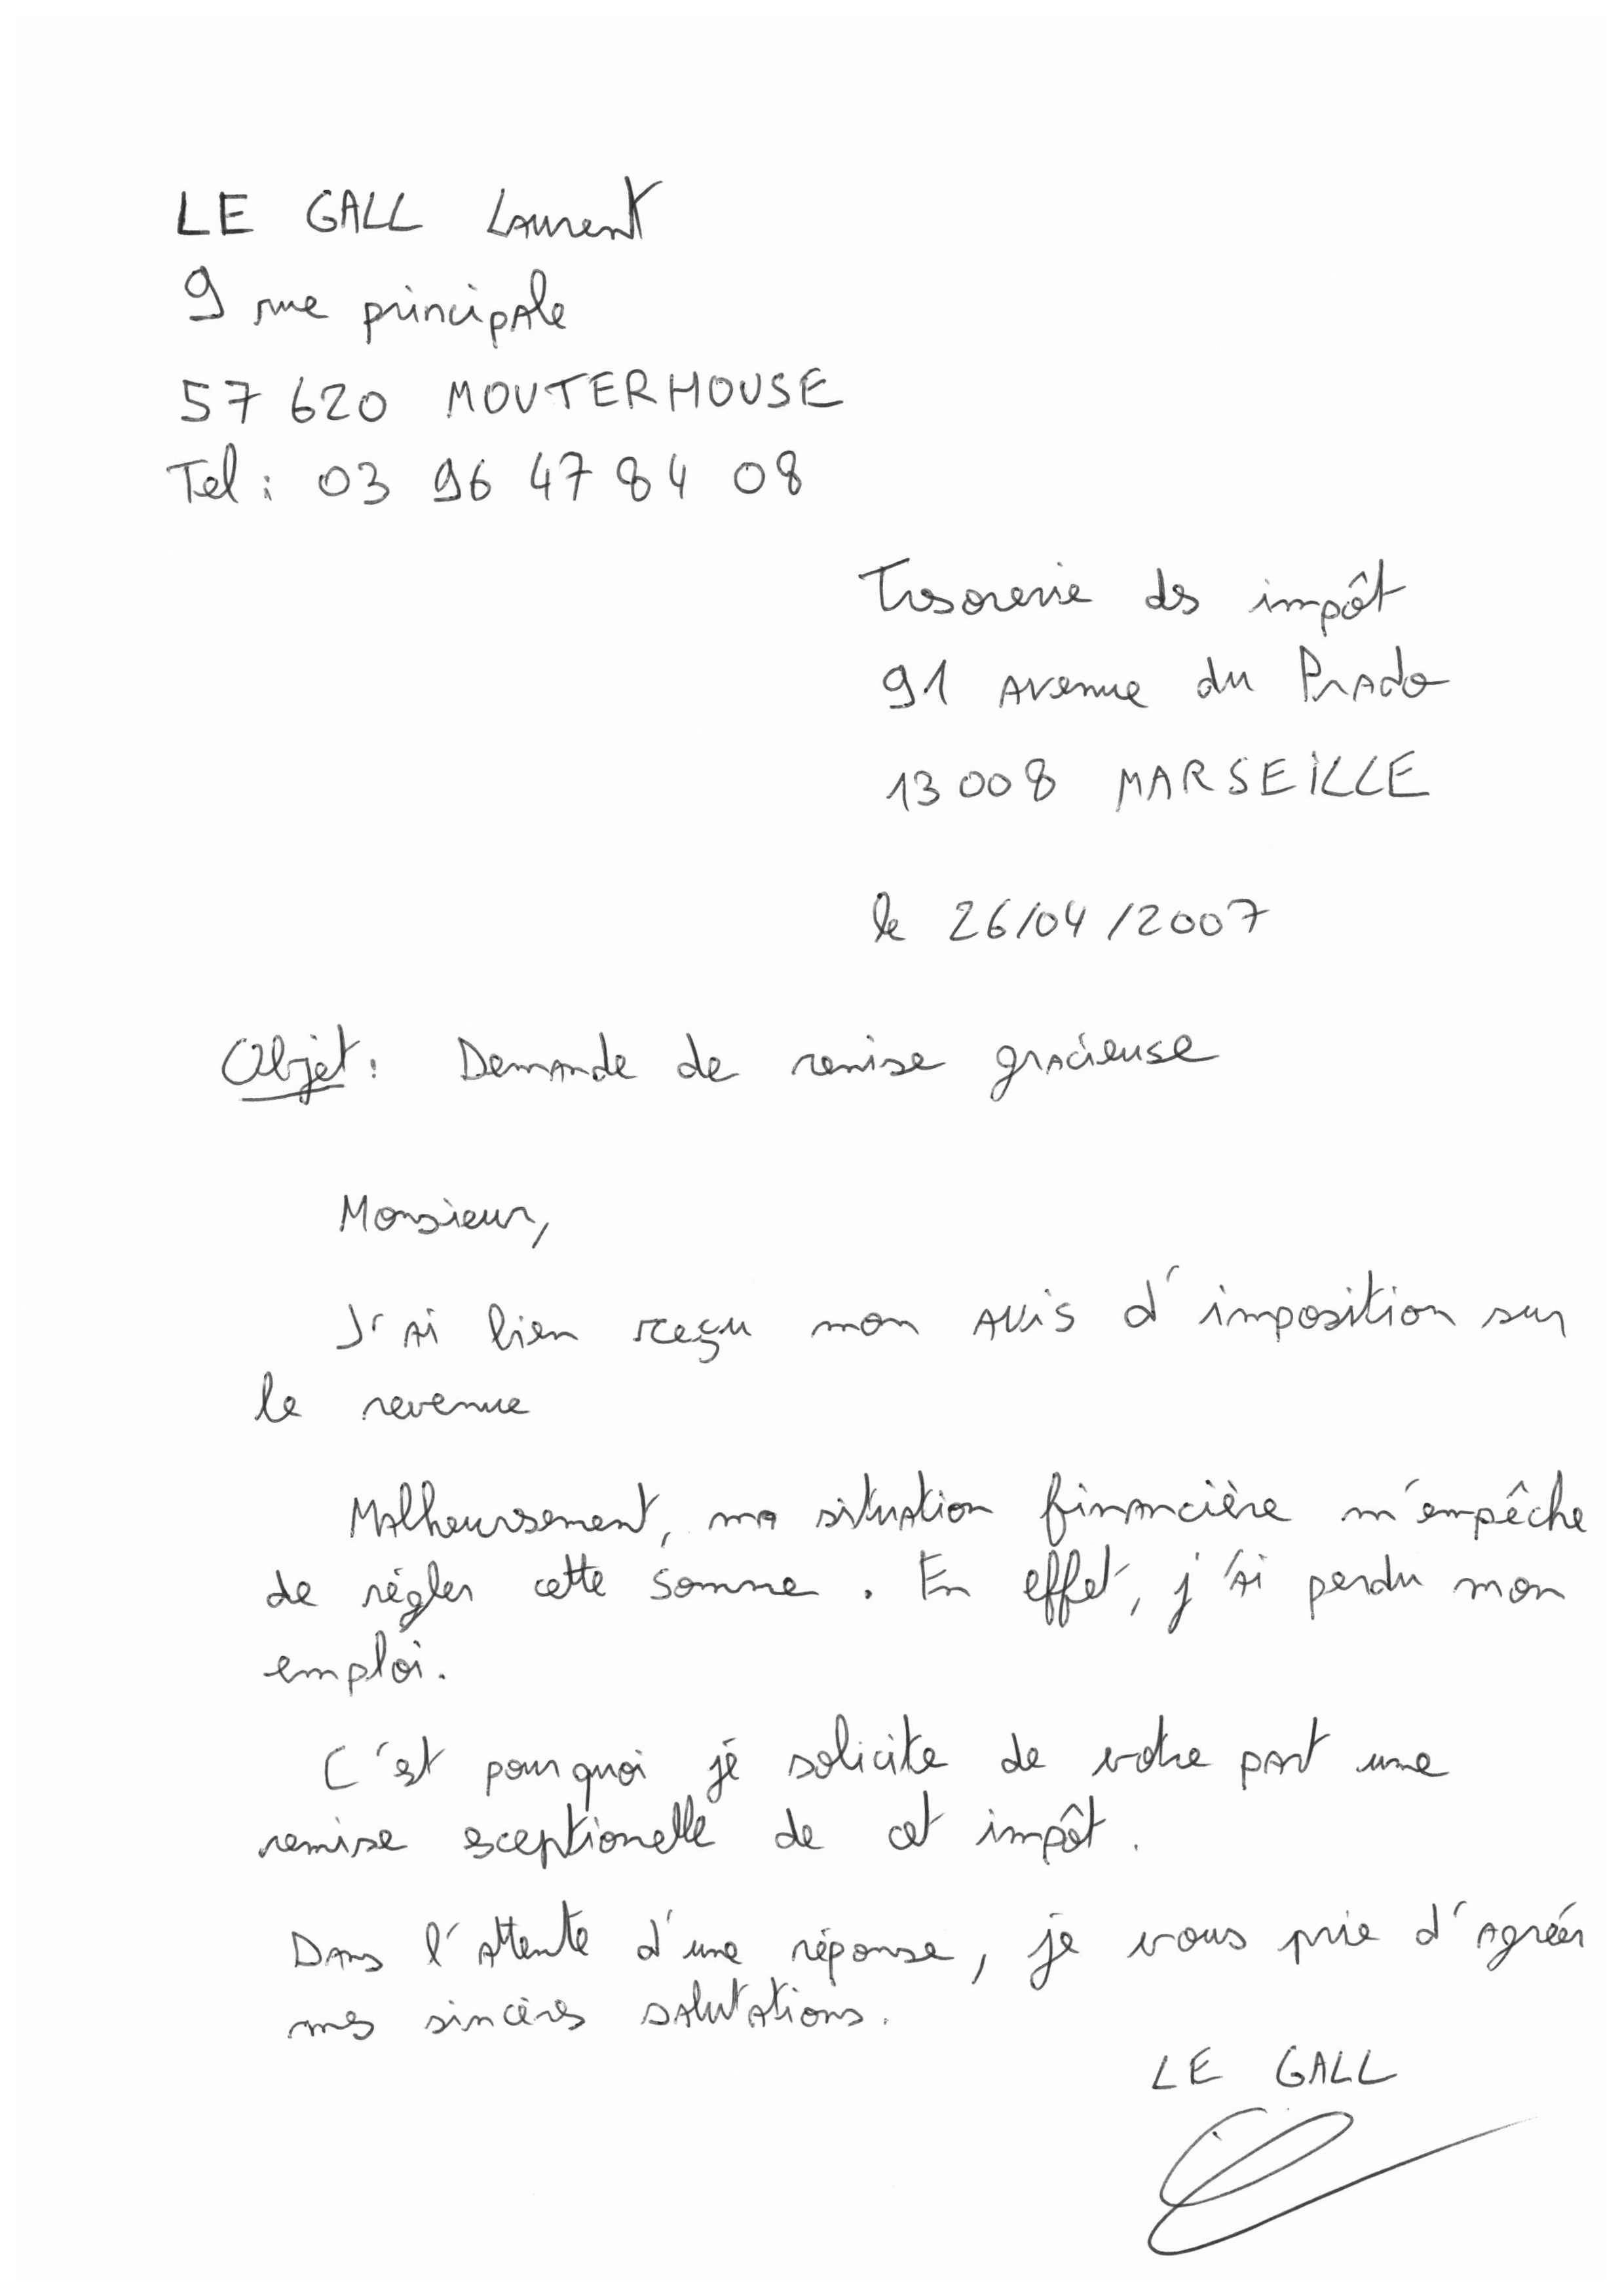 LE GALL Laurent
9 rue principale
57 620 MOUTERHOUSE
Tel : 03 96 47 84 08
Tresorerie des impôt
91 Avenue du Prado
13 008 MARSEILLE
le 26/04/2007
Objet : Demande de remise gracieuse
Monsieur,
J'ai bien reçu mon avis d'imposition sur
le revenue
Malheursement, ma situation financière m'empêche
de régler cette somme. En effet, j'ai perdu mon
emploi.
C'est pourquoi je solicite de votre part une
remise exceptionelle de cet impôt.
Dans l'attente d'une réponse, je vous prie d'agréer
mes sincères salutations.
LE GALL